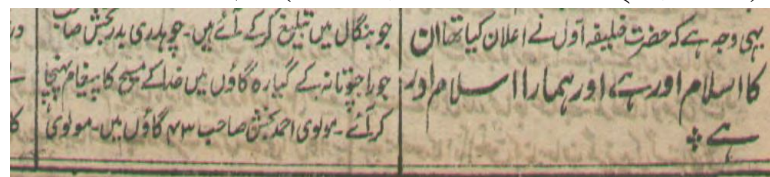 یہی وجہ ہے کہ حضرت خلیفہ اول نے اعلان کیا تھا ان
کا اسلام اور ہے، اور ہمارا اسلام اور
ہے
جو بنگال میں تبلیغ کر کے آئے ہیں۔ چوہدری بدر بخش صاحب
جو راجپوتانہ کے گیارہ گاؤں میں خدا کے مسیح کا پیغام پہنچا
کر آئے۔ مولوی احمد بخش صاحب ۴۳ گاؤں میں۔ مولوی